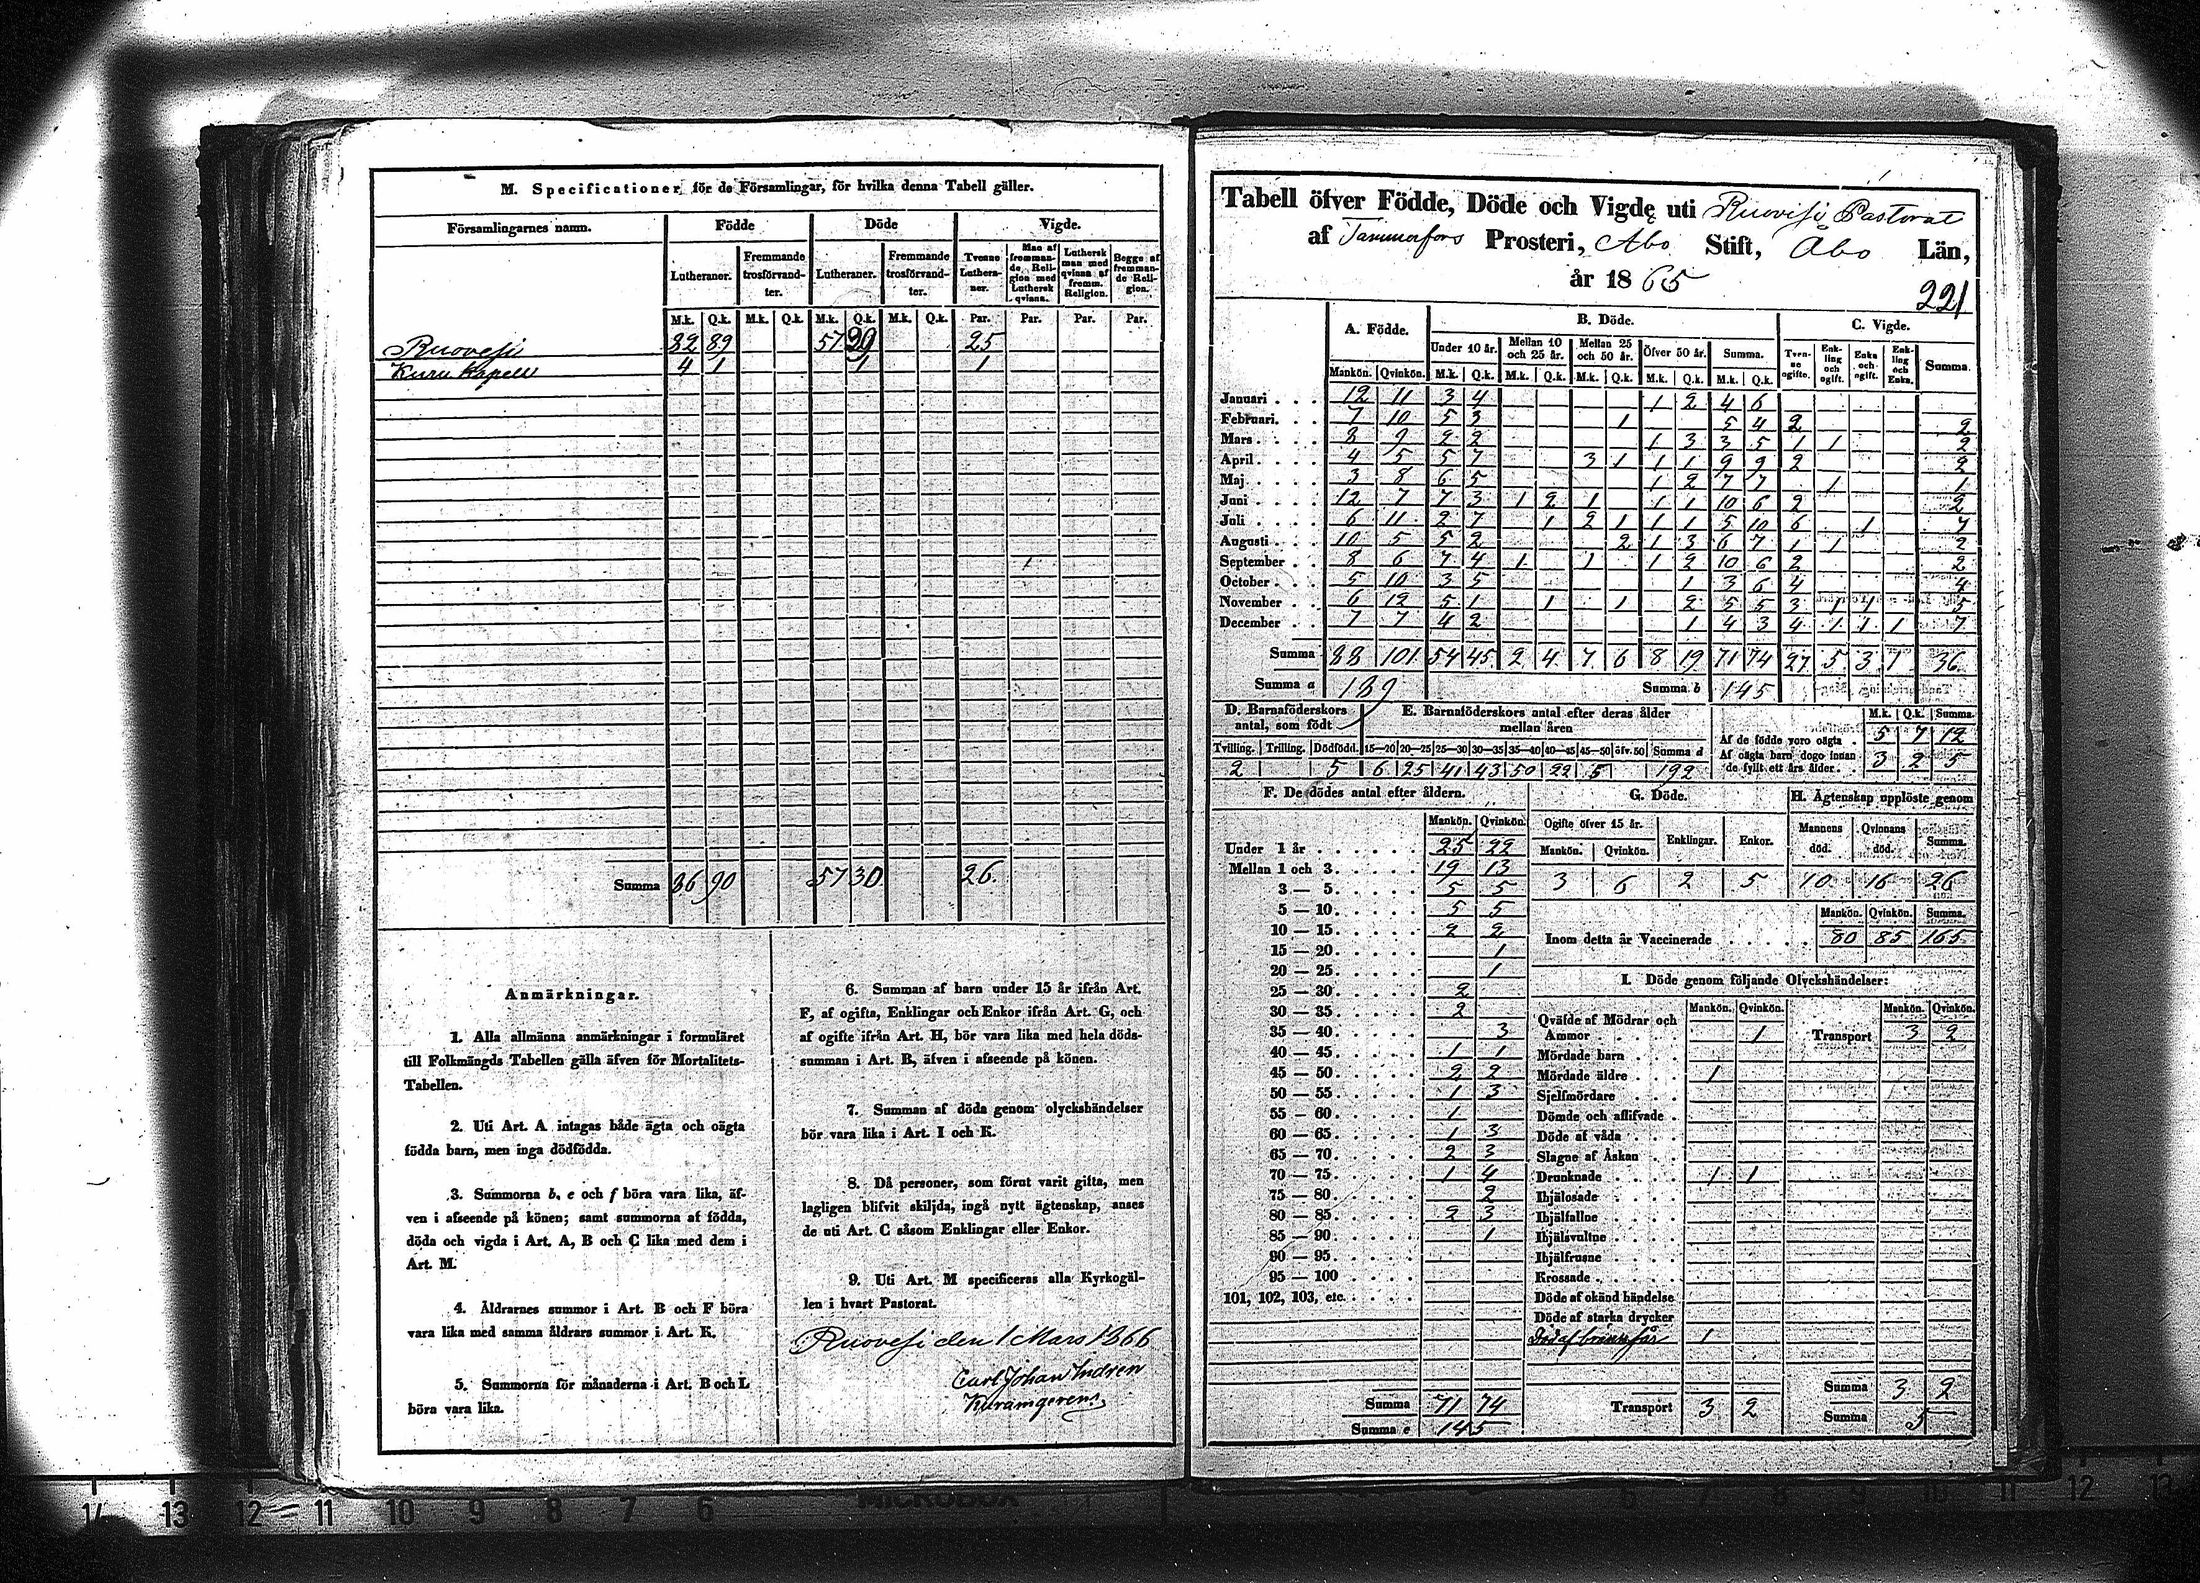 M. Specificationer för de Församlingar, för hvilka denna Tabell gäller.
Församlingarnes namn. Födde Döde Vigde.
Lutheraner. Fremmande trosförvandter. Lutheraner. Fremmande trosförvandter. Tvenne Lutheraner. Man af fremmande Religion med Luthersk qvinna. Luthersk man med qvinna af fremm. Religion. Begge af fremmande Religion.
M.k. Q.k. M.k. Q.k. M.k. Q.k. M.k. Q.k. Par. Par. Par. Par.
Ruovesi 82 89 57 29 25
Kuru Kapell 4 1 1 1
Summa 86 90 57 30 26.
Anmärkningar.
1. Alla allmänna anmärkningar i formuläret
till Folkmängds Tabellen gälla äfven för Mortalitets-
Tabellen.
2. Uti Art. A intagas både ägta och oägta
födda barn, men inga dödfödda.
3. Summorna b, e och f böra vara lika, äf-
ven i afseende på könen; samt summorna af födda,
döda och vigda i Art. A, B och C lika med dem i
Art. M.
4. Åldrarnes summor i Art. B och F böra
vara lika med samma åldrars summor i Art. K.
5. Summorna för månaderna i Art. B och L
böra vara lika.
6. Summan af barn under 15 år ifrån Art.
F, af ogifta, Enklingar och Enkor ifrån Art. G, och
af ogifte ifrån Art. H, bör vara lika med hela döds-
summan i Art. B, äfven i afseende på könen.
7. Summan af döda genom olyckshändelser
bör vara lika i Art. I och K.
8. Då personer, som förut varit gifta, men
lagligen blifvit skiljda, ingå nytt ägtenskap, anses
de uti Art. C såsom Enklingar eller Enkor.
9. Uti Art. M specificeras alla Kyrkogäl-
len i hvart Pastorat.
Ruovesi den 1 Mars 1866
Carl Johan Indren
Tabell öfver Födde, Döde och Vigde uti Ruovesi Pastorat
af Tammerfors Prosteri, Åbo Stift, Åbo Län,
år 1865
221
A. Födde. B. Döde. C. Vigde.
Under 10 år. Mellan 10 och 25 år. Mellan 25 och 50 år. Öfver 50 år. Summa. Tvenne ogifte. Enkling och ogift. Enka och ogift. Enkling och Enka. Summa.
Mankön. Qvinkön. M.k. Q.k. M.k. Q.k. M.k. Q.k. M.k. Q.k. M.k. Q.k.
Januari 12 11 3 4 1 2 4 6
Februari 7 10 5 3 1 5 4 2 2
Mars 8 9 2 2 1 3 3 5 1 1 2
April 4 5 5 7 3 1 1 1 9 9 2 2
Maj 3 8 6 5 1 2 7 7 1 1
Juni 12 7 7 3 1 2 1 1 1 10 6 2 2
Juli 6 11 2 7 1 2 1 1 1 5 10 6 1 7
Augusti 10 5 5 2 2 1 3 6 7 1 1 2
September 8 6 7 4 1 1 1 2 10 6 2 2
October 5 10 3 5 1 3 6 4 4
November 6 12 5 1 1 1 2 5 5 3 1 1 5
December 7 7 4 2 1 4 3 4 1 1 1 7
Summa 88 101 54 45 2 4 7 6 8 19 71 74 27 5 3 1 36
Summa a 189 Summa b 145
D. Barnaföderskors antal, som födt
E. Barnaföderskors antal efter deras ålder mellan åren
Tvilling. Trilling. Dödfödd. 15—20 20—25 25—30 30—35 35—40 40—45 45—50 öfv. 50 Summa d
2 5 6 25 41 43 50 22 5 192
M.k. Q.k. Summa.
Af de födde voro oägta 5 7 12
Af oägta barn dogo innan de fyllt ett års ålder 3 2 5
F. De dödes antal efter åldern.
Mankön. Qvinkön.
Under 1 år 25 22
Mellan 1 och 3 19 13
3 — 5 5 5
5 — 10 5 5
10 — 15 2 2
15 — 20 1
20 — 25 1
25 — 30 2
30 — 35 2
35 — 40 3
40 — 45 1 1
45 — 50 2 2
50 — 55 1 3
55 — 60 1
60 — 65 1 3
65 — 70 2 3
70 — 75 1 4
75 — 80 2
80 — 85 2 3
85 — 90 1
90 — 95
95 — 100
101, 102, 103, etc.
Summa 71 74
Summa e 145
G. Döde.
Ogifte öfver 15 år. Enklingar. Enkor.
Mankön. Qvinkön.
3 6 2 5
H. Ägtenskap upplöste genom
Mannens död. Qvinnans död. Summa.
10 16 26
Mankön. Qvinkön. Summa.
Inom detta år Vaccinerade 80 85 165
I. Döde genom följande Olyckshändelser:
Mankön. Qvinkön. Mankön. Qvinkön.
Qväfde af Mödrar och Ammor 1 Transport 3 2
Mördade barn
Mördade äldre 1
Sjelfmördare
Dömde och aflifvade
Döde af våda
Slagne af Åskan
Drunknade 1 1
Ihjälosade
Ihjälfallne
Ihjälsvultne
Ihjälfrusne
Krossade
Döde af okänd händelse
Döde af starka drycker
Död af brännsår 1
Transport 3 2
Summa 3 2
Summa 5
14 13 12 11 10 9 8 7 6
MICROBOX
6 7 8 9 10 11 12 13